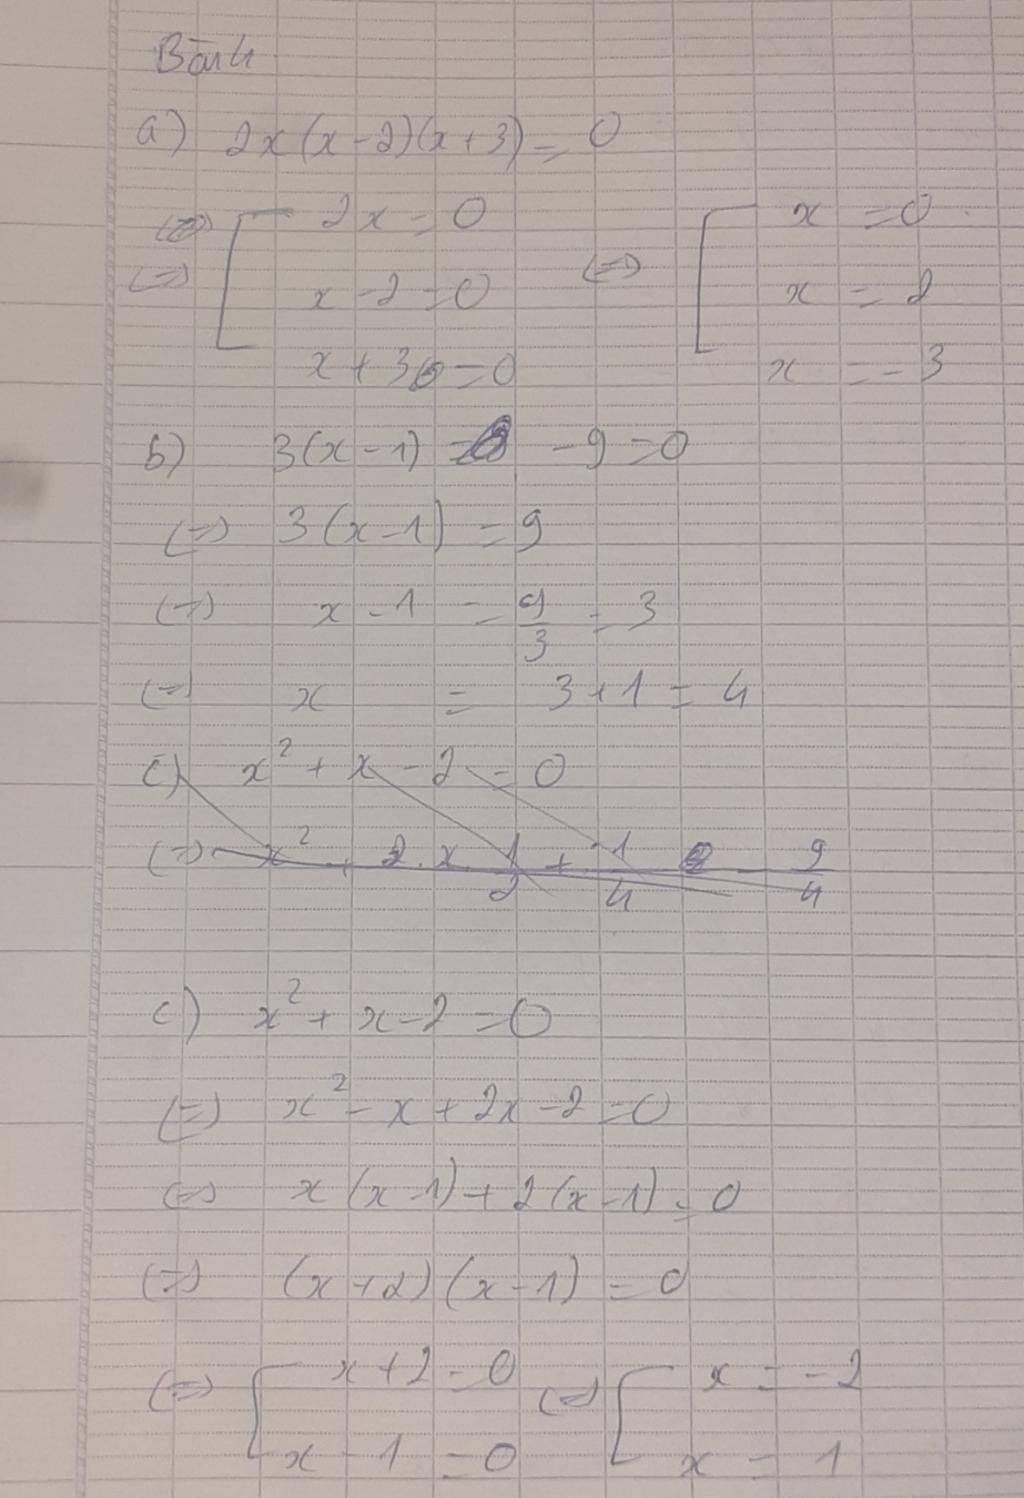 Bài 4
a) 2x(x-2)(x+3) = 0
(=) [ 2x = 0 (=) [ x = 0
x - 2 = 0 x = 2
x + 3 = 0 x = -3
b) 3(x-1) - 9 = 0
(=) 3(x-1) = 9
(=) x - 1 = 9/3 = 3
(=) x = 3+1 = 4
c) x² + x - 2 = 0
(=) x² + 2.x.1/2 + 1/4 - 9/4
c) x² + x - 2 = 0
(=) x² - x + 2x - 2 = 0
(=) x(x-1) + 2(x-1) = 0
(=) (x+2)(x-1) = 0
(=) [ x+2 = 0 (=) [ x = -2
x - 1 = 0 x = 1